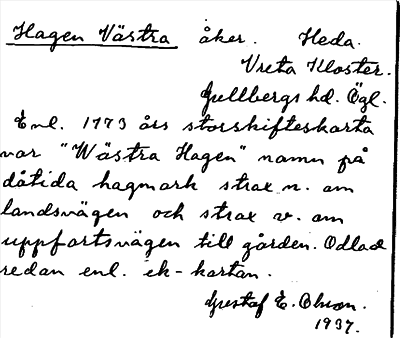 Hagen Västra åker. Heda.
Vreta Kloster.
Gullbergs hd. Ögl.
Enl. 1773 års storskifteskarta
var "Wästra Hagen" namn på
dåtida hagmark strax n. om
landsvägen och strax v. om
uppfartsvägen till gården. Odlad
redan enl. ek-kartan.
Gustaf E. Olson.
1937.